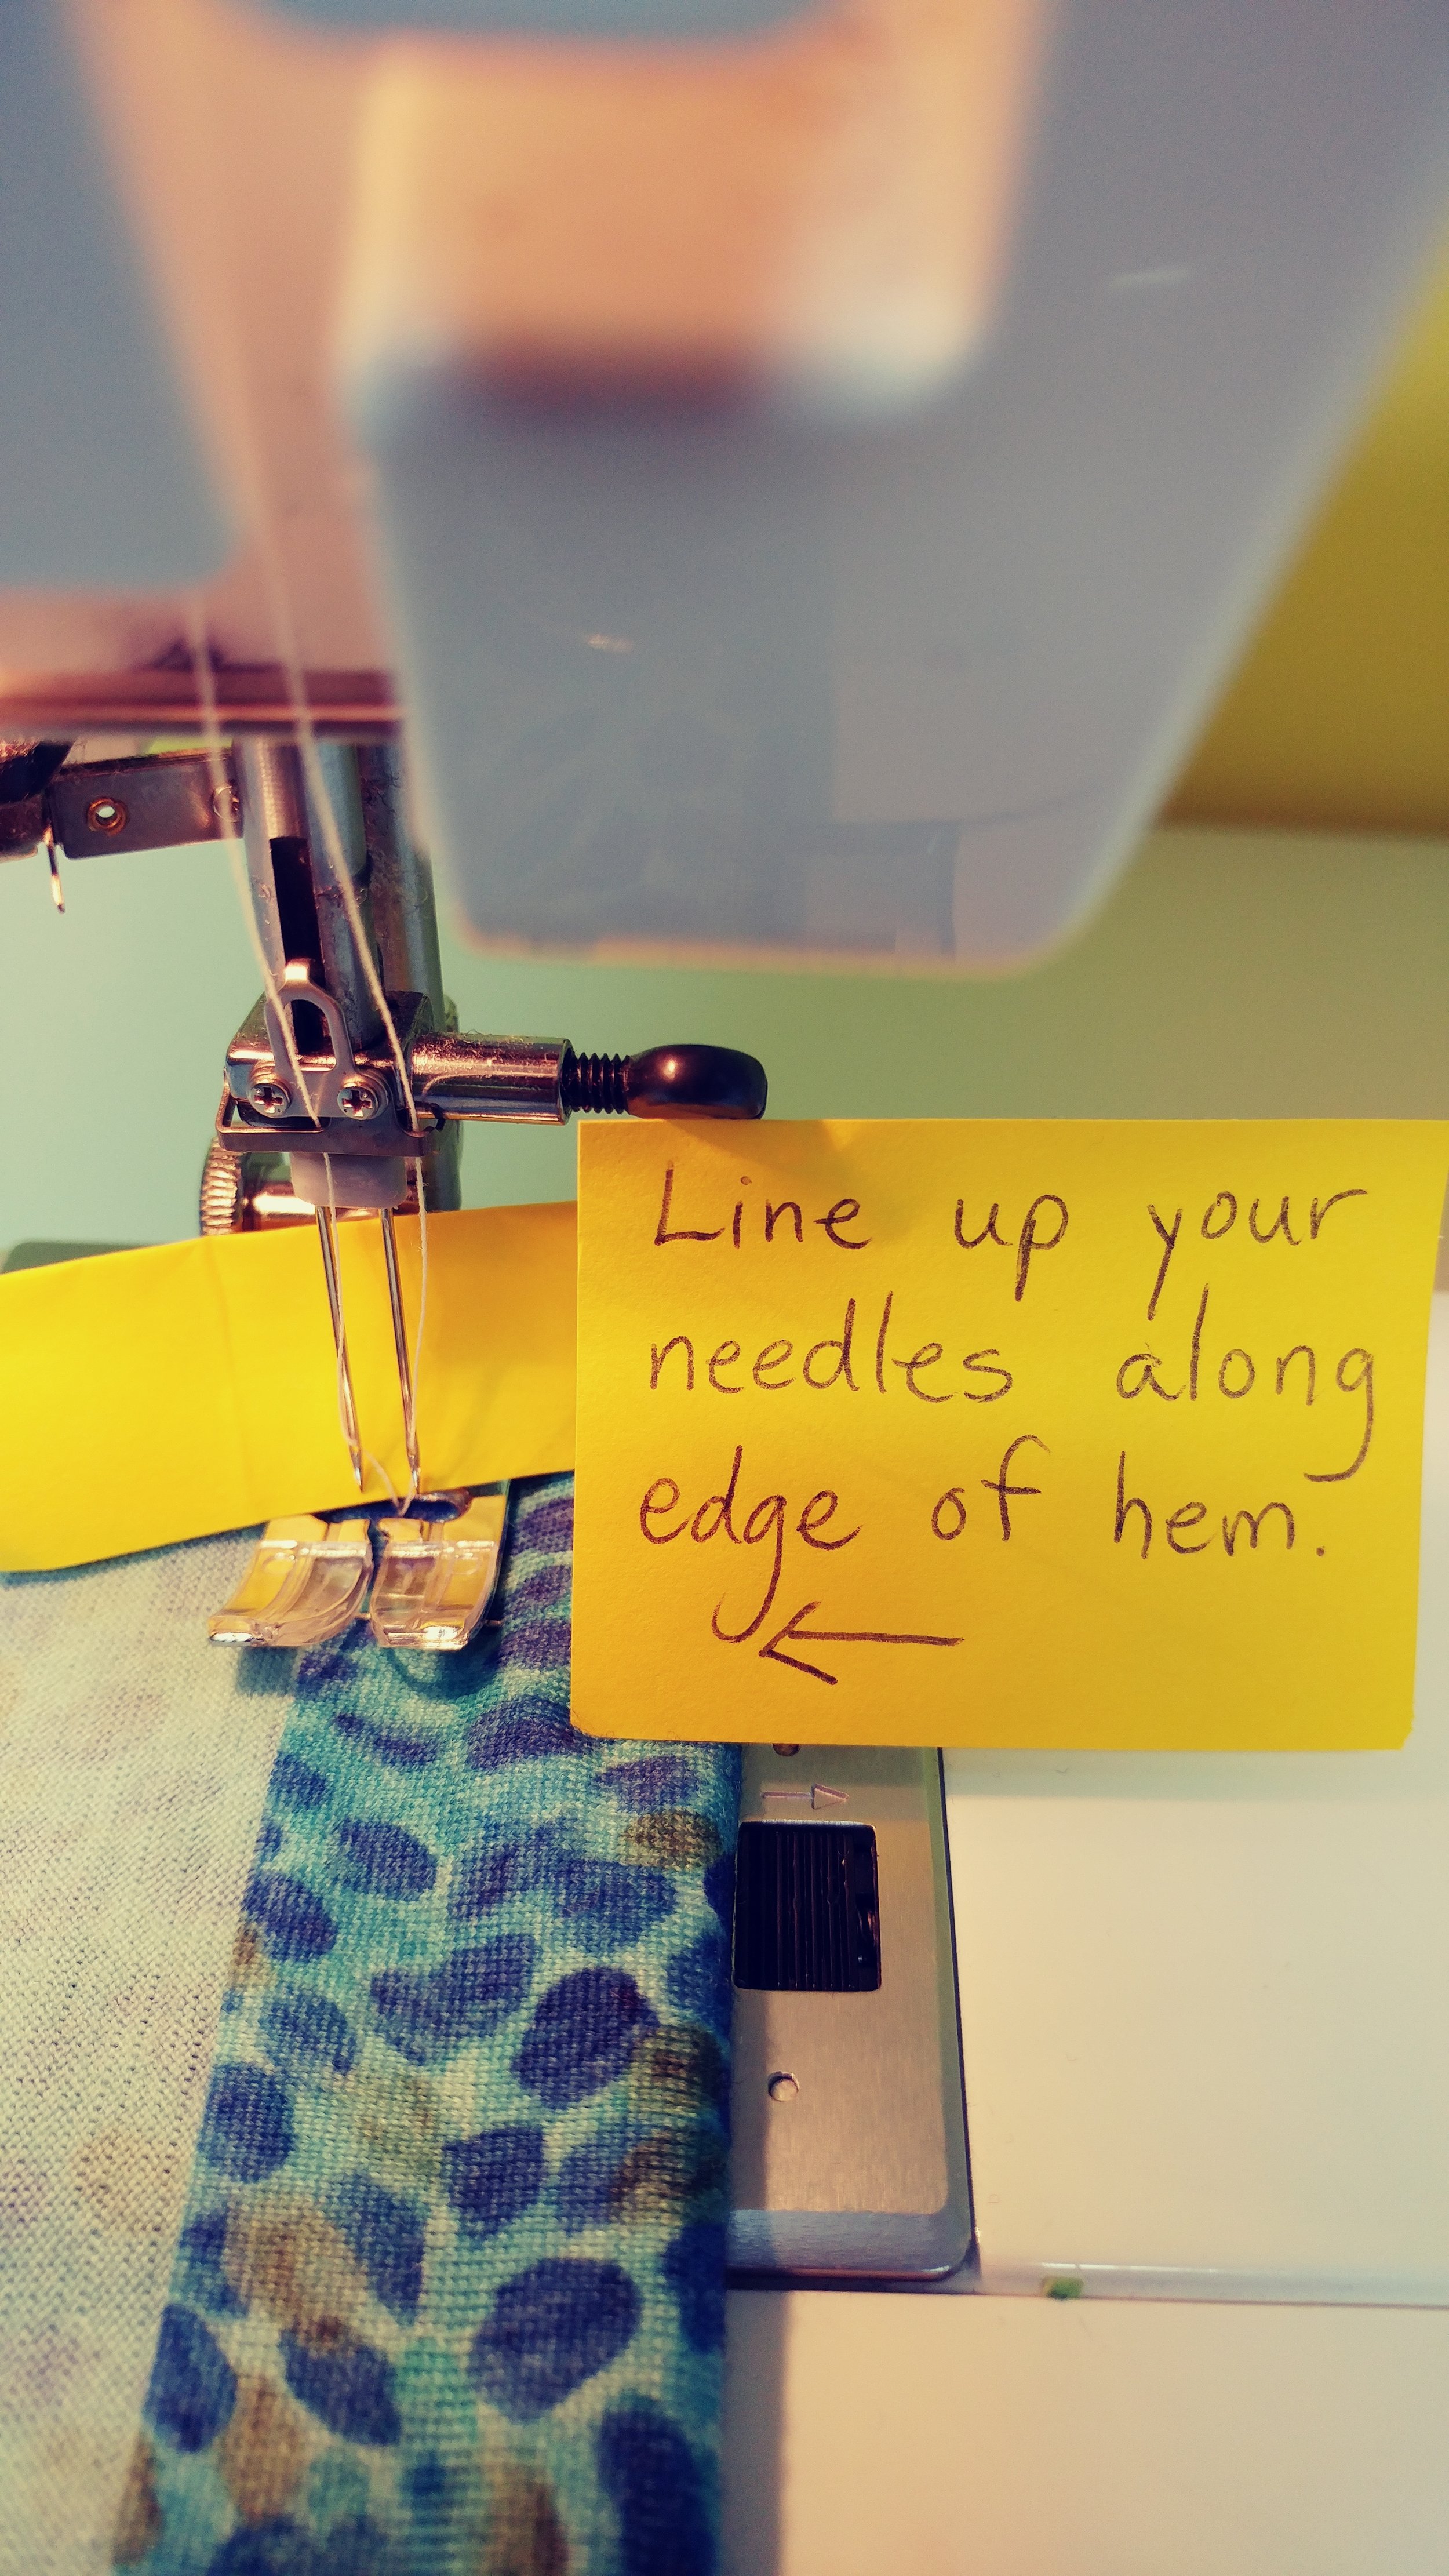 Line up your
needles along
edge of hem.